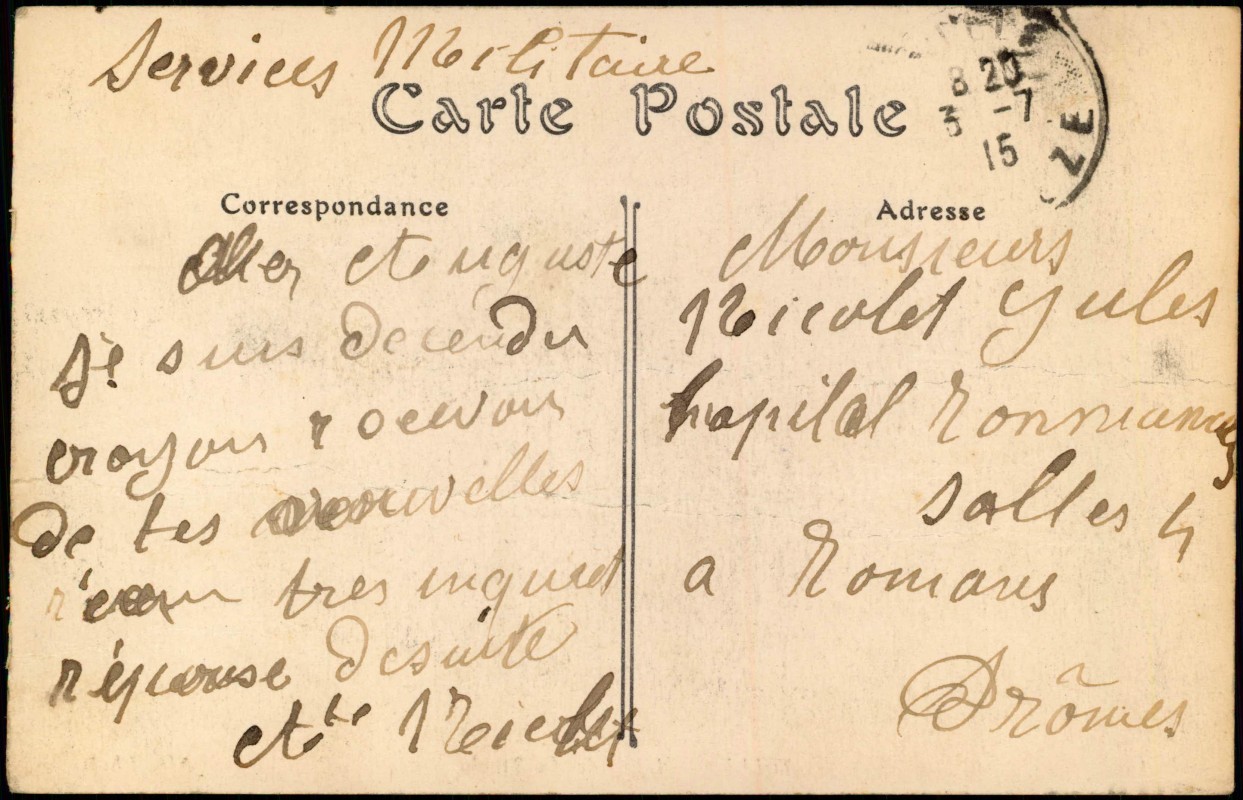 Services Militaire
Carte Postale
8 20
3 -7
15
ZE
Correspondance
Auguste
Je suis decendu
croyan recevoir
de tes nouvelles
tres inquiet
réponse desuite
Atte Nicolet
Adresse
Monsieurs
Nicolet Jules
hopital
salles 4
a Romans
Drômes